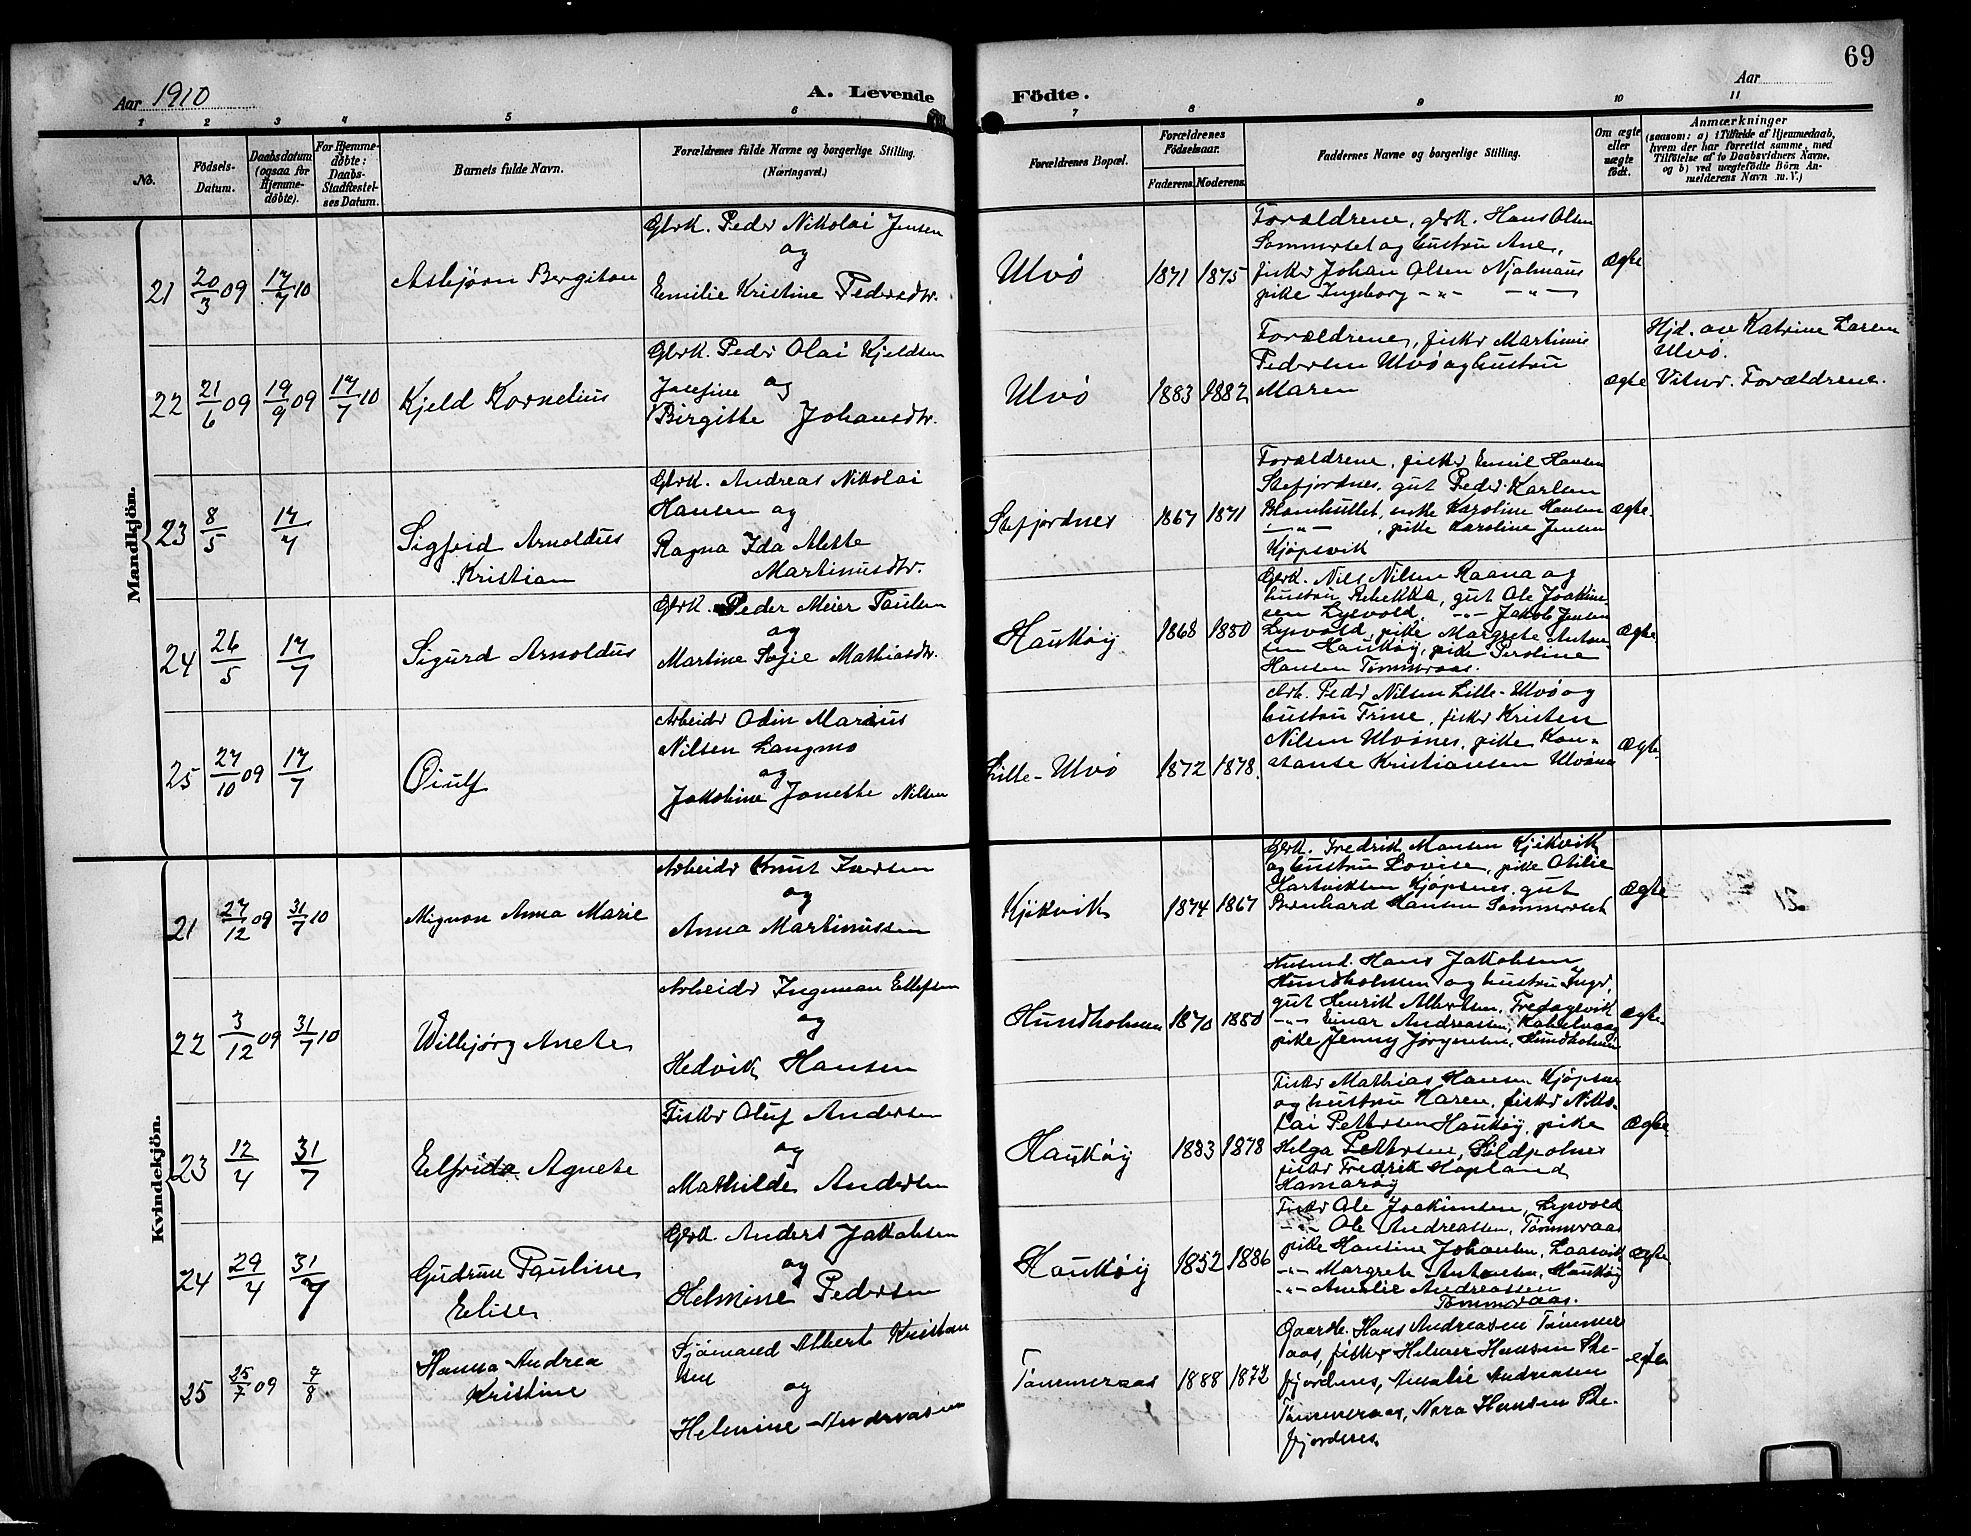 69
Aar 1910
A. Levende
Födte.
Aar
1 2 3 4 5 6 7 8 9 10 11
No.
Födsels-
Datum.
Daabsdatum
(ogsaa for
Hjemme-
döbte).
For Hjemme-
döbte:
Daabs-
Stadfæstel-
ses Datum.
Barnets fulde Navn.
Forældrenes fulde Navne og borgerlige Stilling.
(Næringsvei.)
Forældrenes Bopæl.
Forældrenes
Födselsaar.
Faderens. Moderens.
Faddernes Navne og borgerlige Stilling.
Om ægte
eller
uægte
födt.
Anmærkninger
(saasom: a) i Tilfælde af Hjemmedaab,
hvem der har forrettet samme, med
Tilföielse af to Daabsvidners Navne,
og b) ved uægtefödte Börn An-
melderens Navn m. V.)
Mandkjön.
21 20/3 09 17/7 10 Asbjørn Bergiton
Gbrk. Peder Nikolai Jensen
og
Emilie Kristine Pedersdtr.
Ulvø 1871 1875
Forældrene, gbrk. Hans Olsen
Sommerset og hustru Ane,
fisker Johan Olsen
pike Ingeborg -"- -"-
Ægte
22 21/6 09 19/9 09 17/7 10 Kjeld Kornelius
Gbrk. Peder Olai Kjeldsen
Josefine og
Birgitte Johansdtr.
Ulvø 1883 1882
Forældrene, fisker Martinus
Pedersen Ulvø og hustru
Maren
Ægte
Hjd. av Katrine Larsen
Ulvø.
Vitner. Forældrene.
23 8/5 17/7 Sigfrid Arnoldus
Kristian
Gbrk. Andreas Nikolai
Hansen og
Ragna Ida Alette
Martinusdtr.
Stefjordnes 1867 1871
Forældrene, fisker Emil Hansen
Stefjordnes, gut Peder Karlsen
enke Karoline Hansen
-"- , pike Karoline Jensen
Kjøpsvik
Ægte.
24 26/5 17/7 Sigurd Arnoldus
Gbrk. Peder Meier Paulsen
og
Martine Sofie Mathiasdtr.
Haukøy 1868 1880
Gbrk. Nils Nilsen Raana og
hustru Rebekka, gut Ole Joakim-
sen Lysvold, -"- Jakob Jensen
Lysvold, pike Margrete Anton-
sen Haukøy, pike Peroline
Hansen Tømmeraas.
Ægte.
25 27/10 09 17/7 Øiulf
Arbeider Odin Marius
Nilsen Langmo
og
Jakobine Jonette Nilsen
Lille-Ulvø 1872 1878.
Arb. Peder Nilsen Lille-Ulvø og
hustru Trine, fisker Kristen
Nilsen Ulvønes, pike Kon-
stanse Kristiansen Ulvønes
Ægte.
Kvindekjön.
21 27/12 09 31/7 10 Mignon Anna Marie
Arbeider Knut Iversen
og
Anna Martinussen
Kjikvik 1874 1867
Gbrk. Fredrik Monsen Kjikvik
og hustru Lovise, pike Otilie
Hartviksen Kjøpsnes, gut
Bernhard Hansen Sommerset
Ægte
22 3/12 09 31/7 10 Wilbjørg Anete
Arbeider Ingeman Ellefsen
og
Hedvik Hansen
Hundholmen 1870 1880
Husmd. Hans Jakobsen
Hundholmen og hustru Inger,
gut Henrik Albertsen, Fredagsvik
-"- Einar Andreassen, Kabelvaag
pike Jenny Jørgensen, Hundholmen
Ægte.
23 12/4 31/7 Elfrida Agnete
Fisker Oluf Andersen
og
Mathilde Andersen
Haukøy 1883 1878
Fisker Mathias Hansen Kjøpsnes
og hustru Karen, fisker Niko-
lai Pettersen Haukøy, pike
Helga Pettersen, Sildpolnes
fisker Fredrik Hopland
Hamarøy
Ægte.
24 29/4 31/7 Gudrun Pauline
Elise
Gbrk. Anders Jakobsen
og
Helmine Pedersen
Haukøy 1852 1886
Fisker Ole Joakimsen, Lysvold
-"- Ole Andreassen, Tømmeraas
pike Hansine Johansen, Laasvik
-"- Margrete Antonsen, Haukøy
-"- Amalie Andreassen
Tømmeraas.
Ægte.
25 25/7 09 7/8 Hanna Andrea
Kristine
Sjømand Albert Kristian
sen
og
Helmine Andreasen
Tømmeraas 1888 1872
Gaardbr. Hans Andreasen Tømmer
aas, fisker Helmer Hansen Ste-
fjordnes, Amalie Andreasen
Tømmeraas, Nora Hansen Ste-
fjordnes.
egte